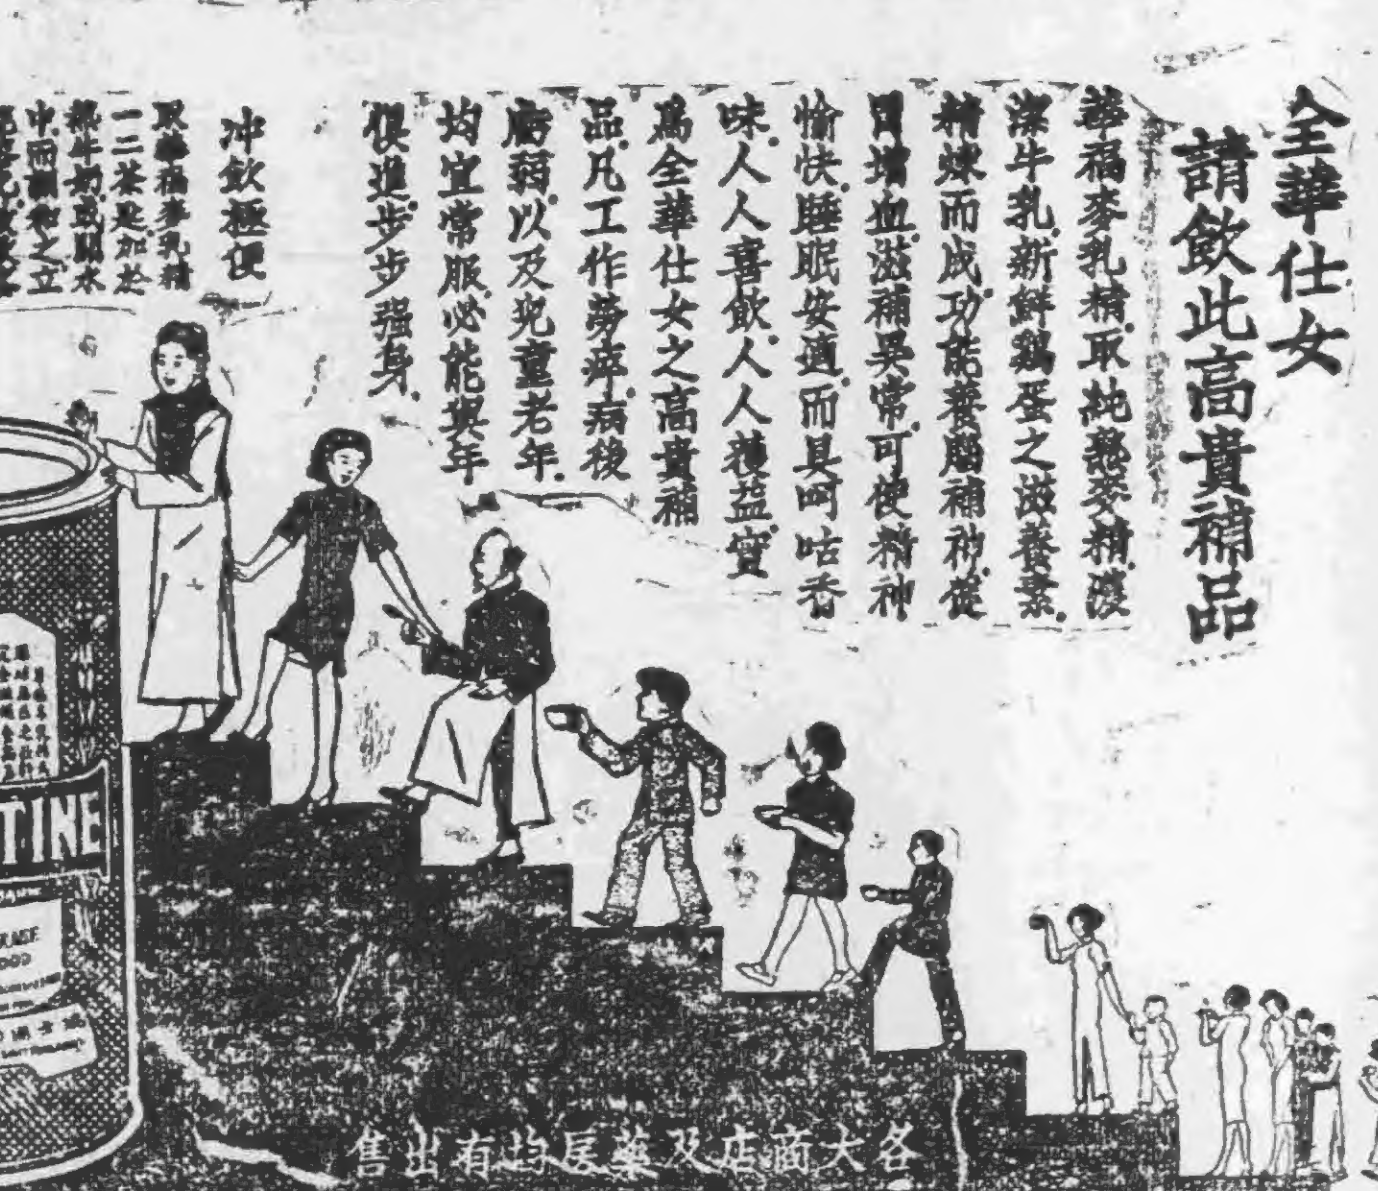 全華仕女
請飲此高貴補品
華福麥乳精取純熟麥精濃
潔牛乳新鮮鷄蛋之滋養素
精煉而成功能養腦補神從
胃增血滋補異常可使精神
愉快睡眠安適而具呵咕香
味人人喜飲人人獲益實
為全華仕女之高貴補
品凡工作勞瘁病後
虛弱以及兒童老年
均宜常服必能與年
俱進步步强身
冲飲極便
取華福麥乳精
一二茶匙加於
熱牛奶或開水
中而調勻之立
TINE
各大商店及藥房均有出售